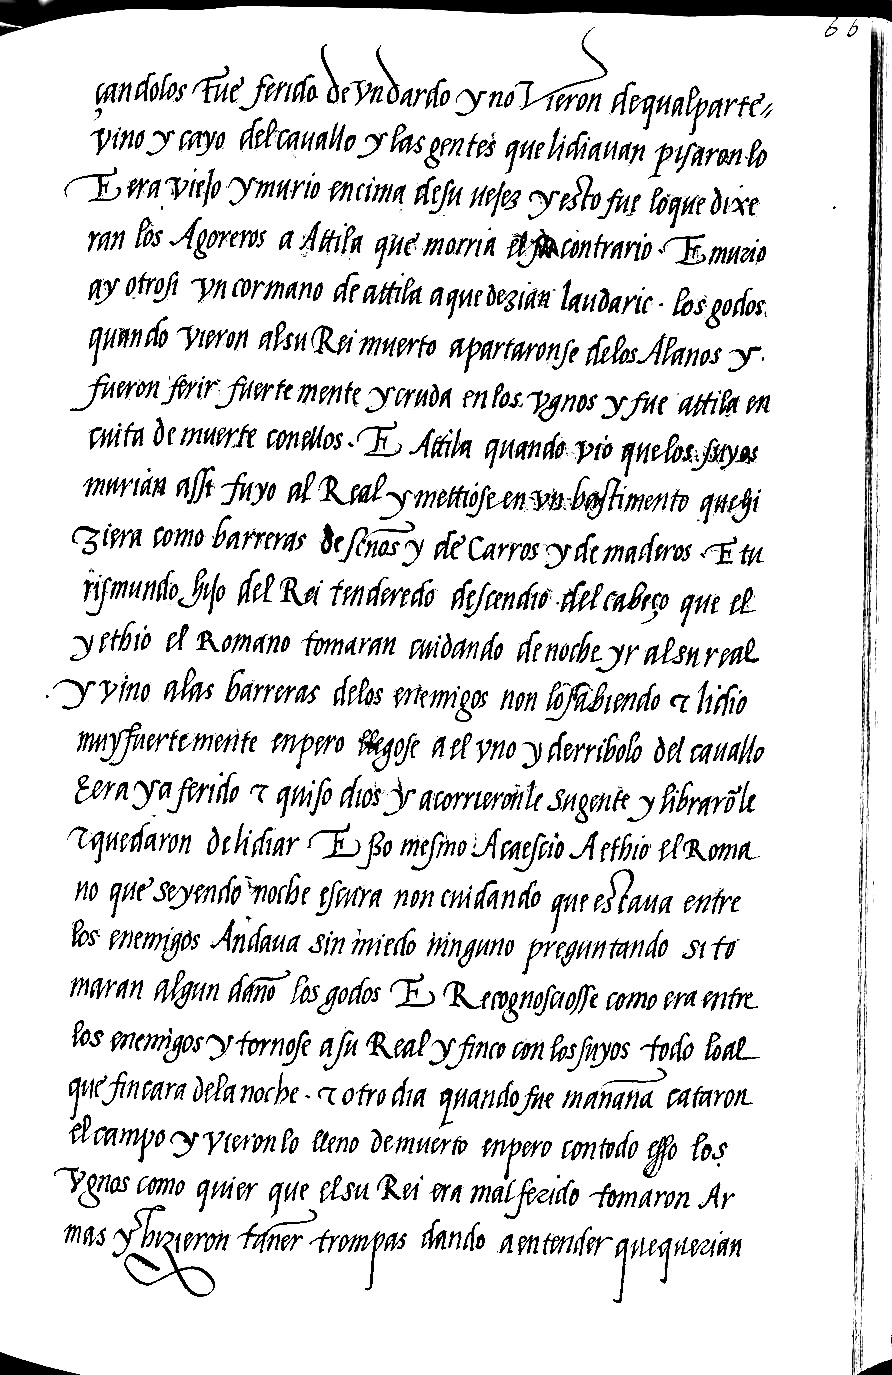 66
çandolos Fue ferido de vn dardo y no Vieron de qual parte
vino y cayo del cauallo y las gentes que lidiauan pisaron lo
E era viejo y murio encima de su uejez y esto fue lo que dixe
ran los Agoreros a Attila que morria el contrario. E murio
ay otrosi vn cormano de attila a que dezian laudaric. los godos
quando vieron al su Rei muerto apartaronse de los Alanos y
fueron ferir fuerte mente y cruda en los vgnos y fue attila en
cuita de muerte con ellos. E Attila quando vio que los suyos
murian assi fuyo al Real y mettiose en vn bastimento que hi
ziera como barreras de senos y de Carros y de maderos. E tu
rismundo hijo del Rei tenderedo descendio del cabeço que el
y ethio el Romano tomaran cuidando de noche yr al su real
y vino a las barreras de los enemigos non lo sabiendo τ lidio
muy fuerte mente enpero llegose a el vno y derribolo del cauallo
E era ya ferido τ quiso dios y acorrieronle su gente y libraro͂ le
τ quedaron de lidiar E sso mesmo Acaescio A ethio el Roma
no que seyendo noche escura non cuidando que estaua entre
los enemigos Andaua sin miedo ninguno preguntando si to
maran algun daño los godos E Recognosciosse como era entre
los enemigos y tornose a su Real y finco con los suyos todo lo al
que fincara de la noche. τ otro dia quando fue mañana cataron
el campo y vieron lo lleno de muerto enpero con todo esso los
vgnos como quier que el su Rei era mal ferido tomaron Ar
mas y hizieron tañer trompas dando a entender que querian